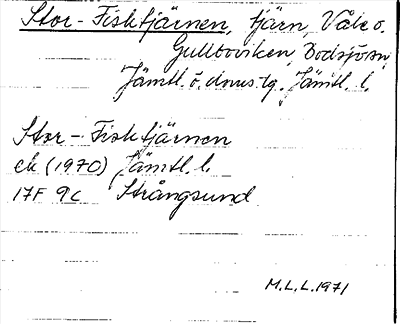 Stor-Fisktjärnen, tjärn, Våle o.
Gulltoviken, Bodsjösn,
Jämtl. ö. dms. tg., Jämtl. l.
Stor-Fisktjärnen
ek (1970) Jämtl. l.
17F 9c Strångsund
M.L.L. 1971